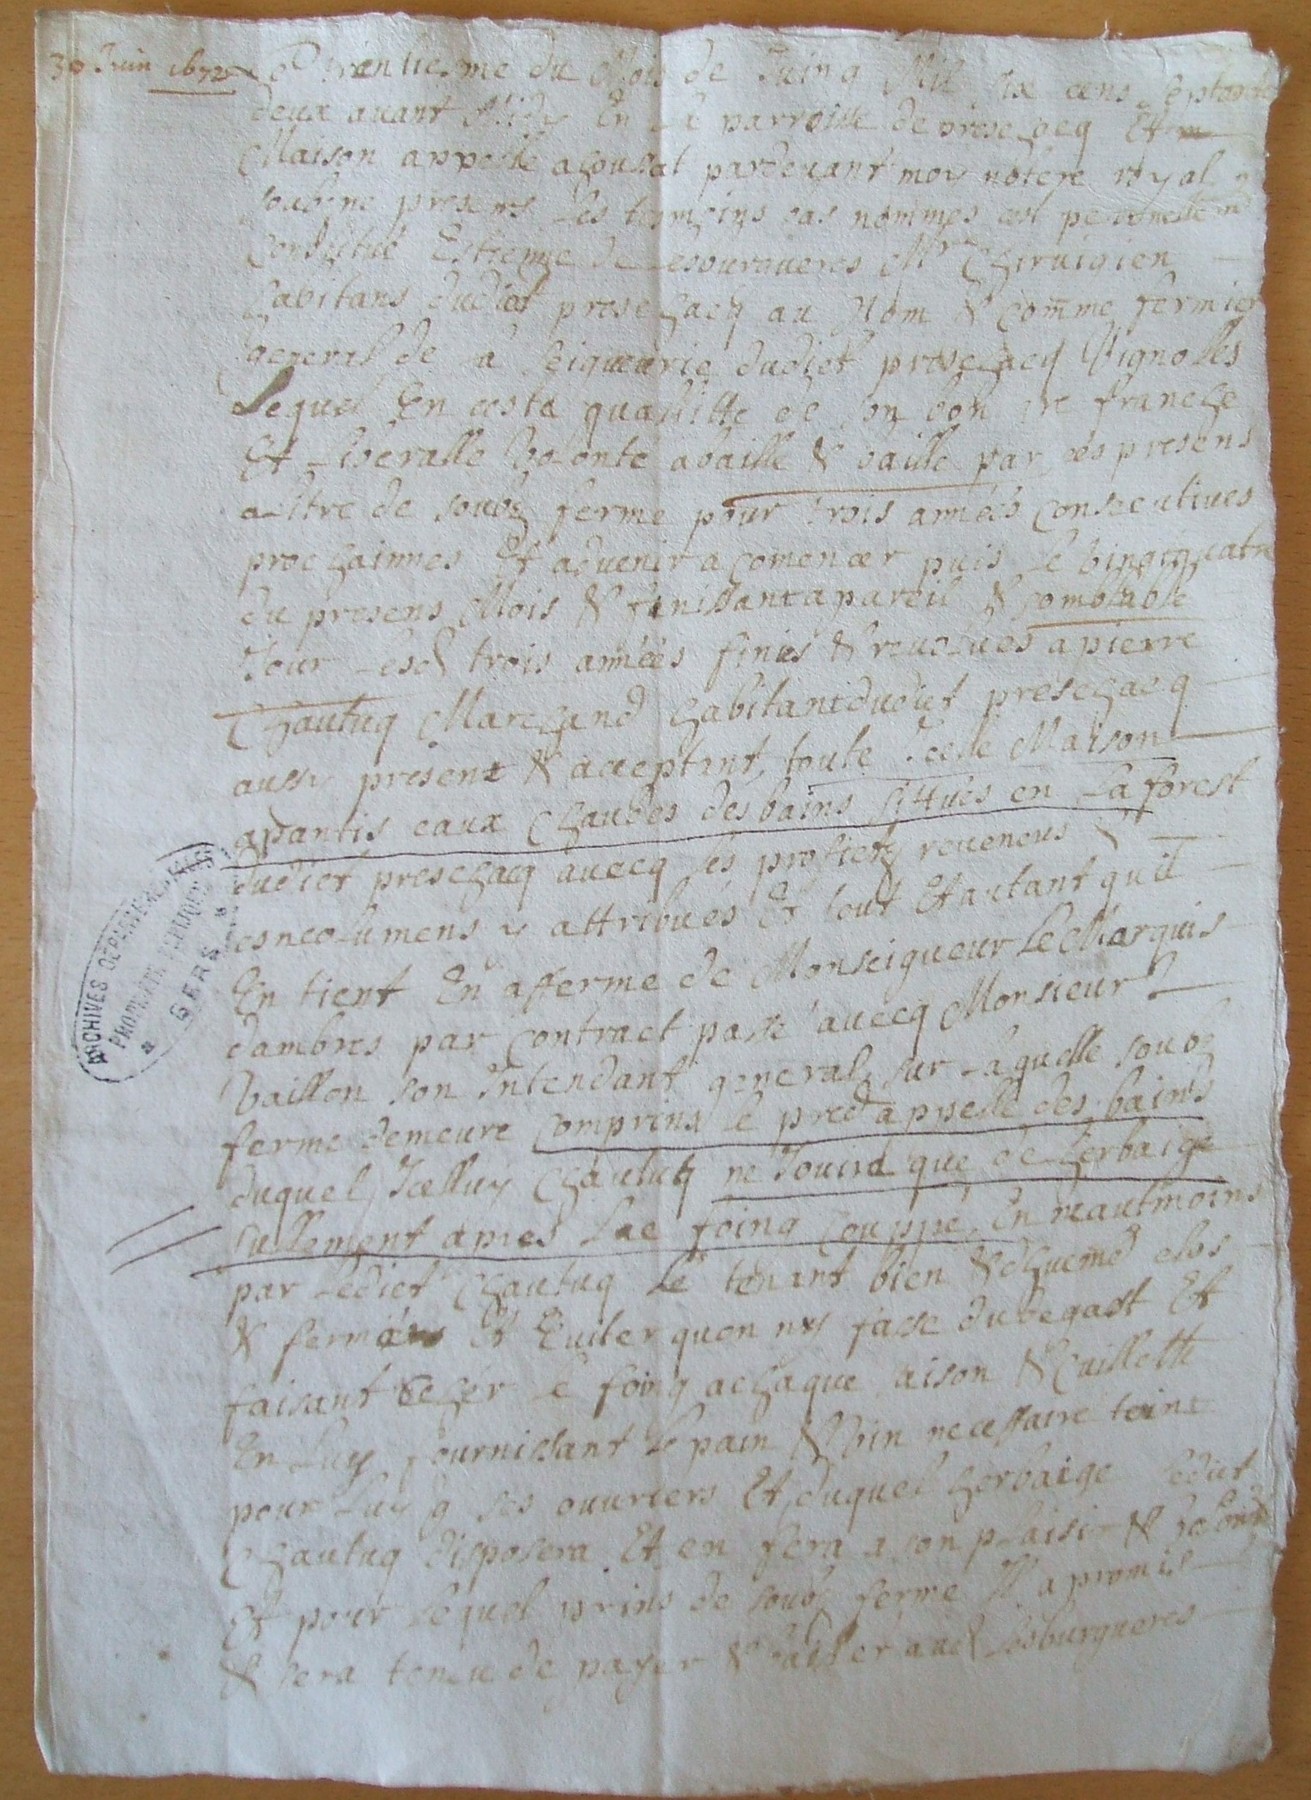 30 Juin 1672
Trentiesme du Mois de Juing Mil six cens septante
deux avant Midy En la parroisse de presechacq Et
Maison appelle acoussat pardevant moy notere royal
soubsne presens les tesmoins bas nommes est personnellemt
constitué Estienne de Lesburgueres Mre Chirurgien
habitans dudict presechacq au Nom & comme fermier
general de la Seigneurie dudict presechacq Vignolles
Lequel En ceste quallitte de son bon gre franche
Et liberalle volonte abaille & baille par ces presens
a titre de soubz ferme pour trois années consecutives
prochainnes Et advenir a comencer puis le vingt quatre
du presens Mois & finissant a pareil & semblable
Jour lesd trois années finies & revolues a pierre
Chautuq Marchand habitant dudict presechacq
aussy present & acceptant, toute Icelle Maison
apantis eaux chaudes des bains sittués en La forest
dudict presechacq avecq les profietz revenens &
esmolumens y attribués Et tout Et autant qu'il
En tient En afferme de Monseigneur Le Marquis
dambres par contract passé avecq Monsieur
Vaillon son Intendant general, sur laquelle soubz
ferme demeure comprins le pred appelle des bains
duquel Icelluy Chautuq ne Jouira que de Lherbaige
sullement apres Lae foing couppé, En neautmoins
par Ledict Chautuq Le tenant bien & dhuemd clos
& fermé Et Eviter quon ny fasse du degast Et
faisant secher le foing achaque saison & Cuillette
En Luy fournissant le pain & Vin necessaire teint
pour Luy q ses ouvriers Et duquel herbaige Ledict
Chautuq disposera Et en fera a son plaisir & volonte
Et pour Lequel prins de soubz ferme Il a promis
& sera tenu de payer & bailler aud Lesburgueres
ARCHIVES DEPARTEMENTALES
GERS